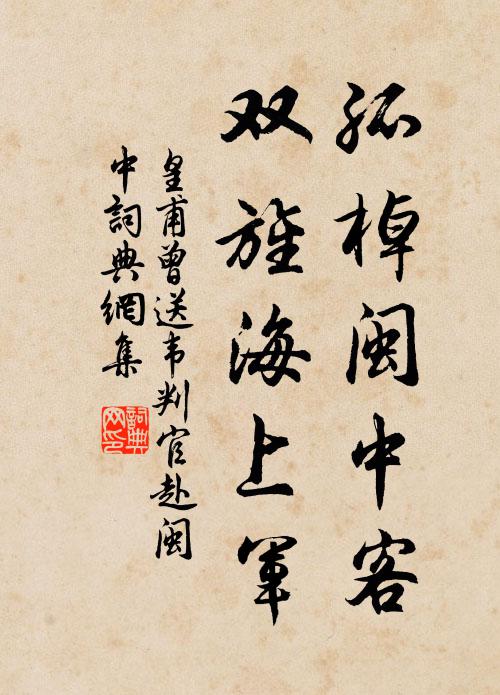 孤棹闽中客
双旌海上军
皇甫曾送韦判官赴闽
中詞典網集
詞典网印